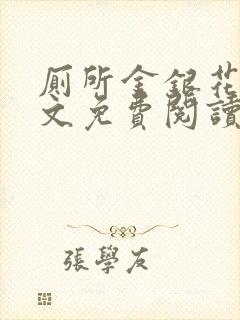 厠所金銀花
文免費閱讀
張學友